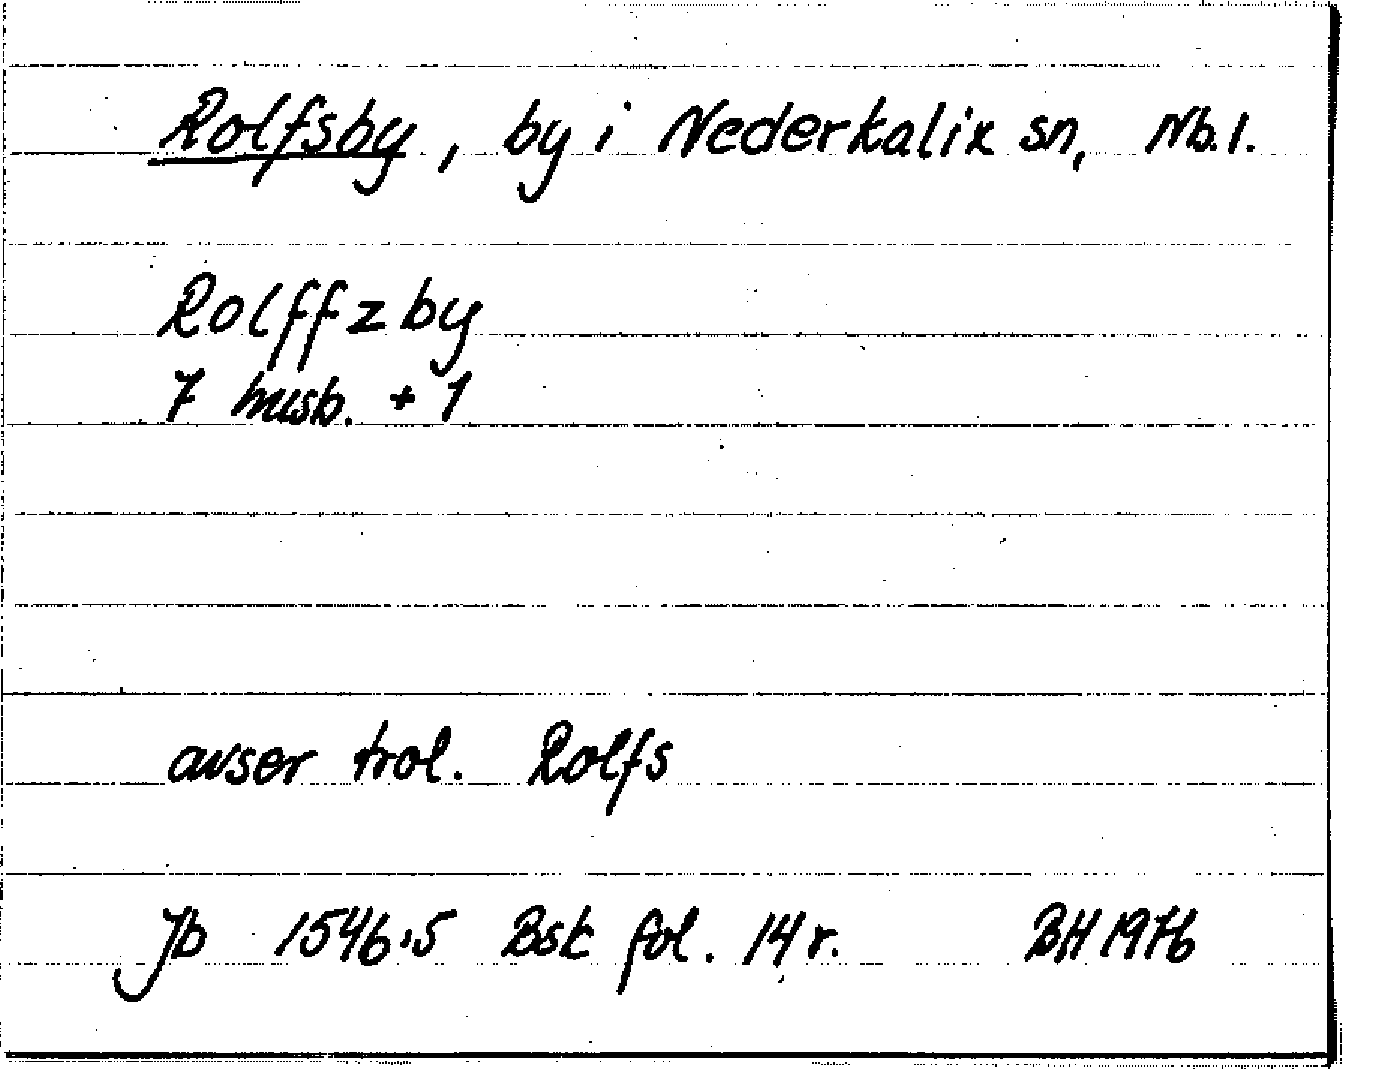 Rolfsby, by i Nederkalix sn, Nb.l.
Rolffzby
7 husb. + 1
avser trol. Rolfs
Jb 1546:5 Bsk fol. 14 r. BH 1976